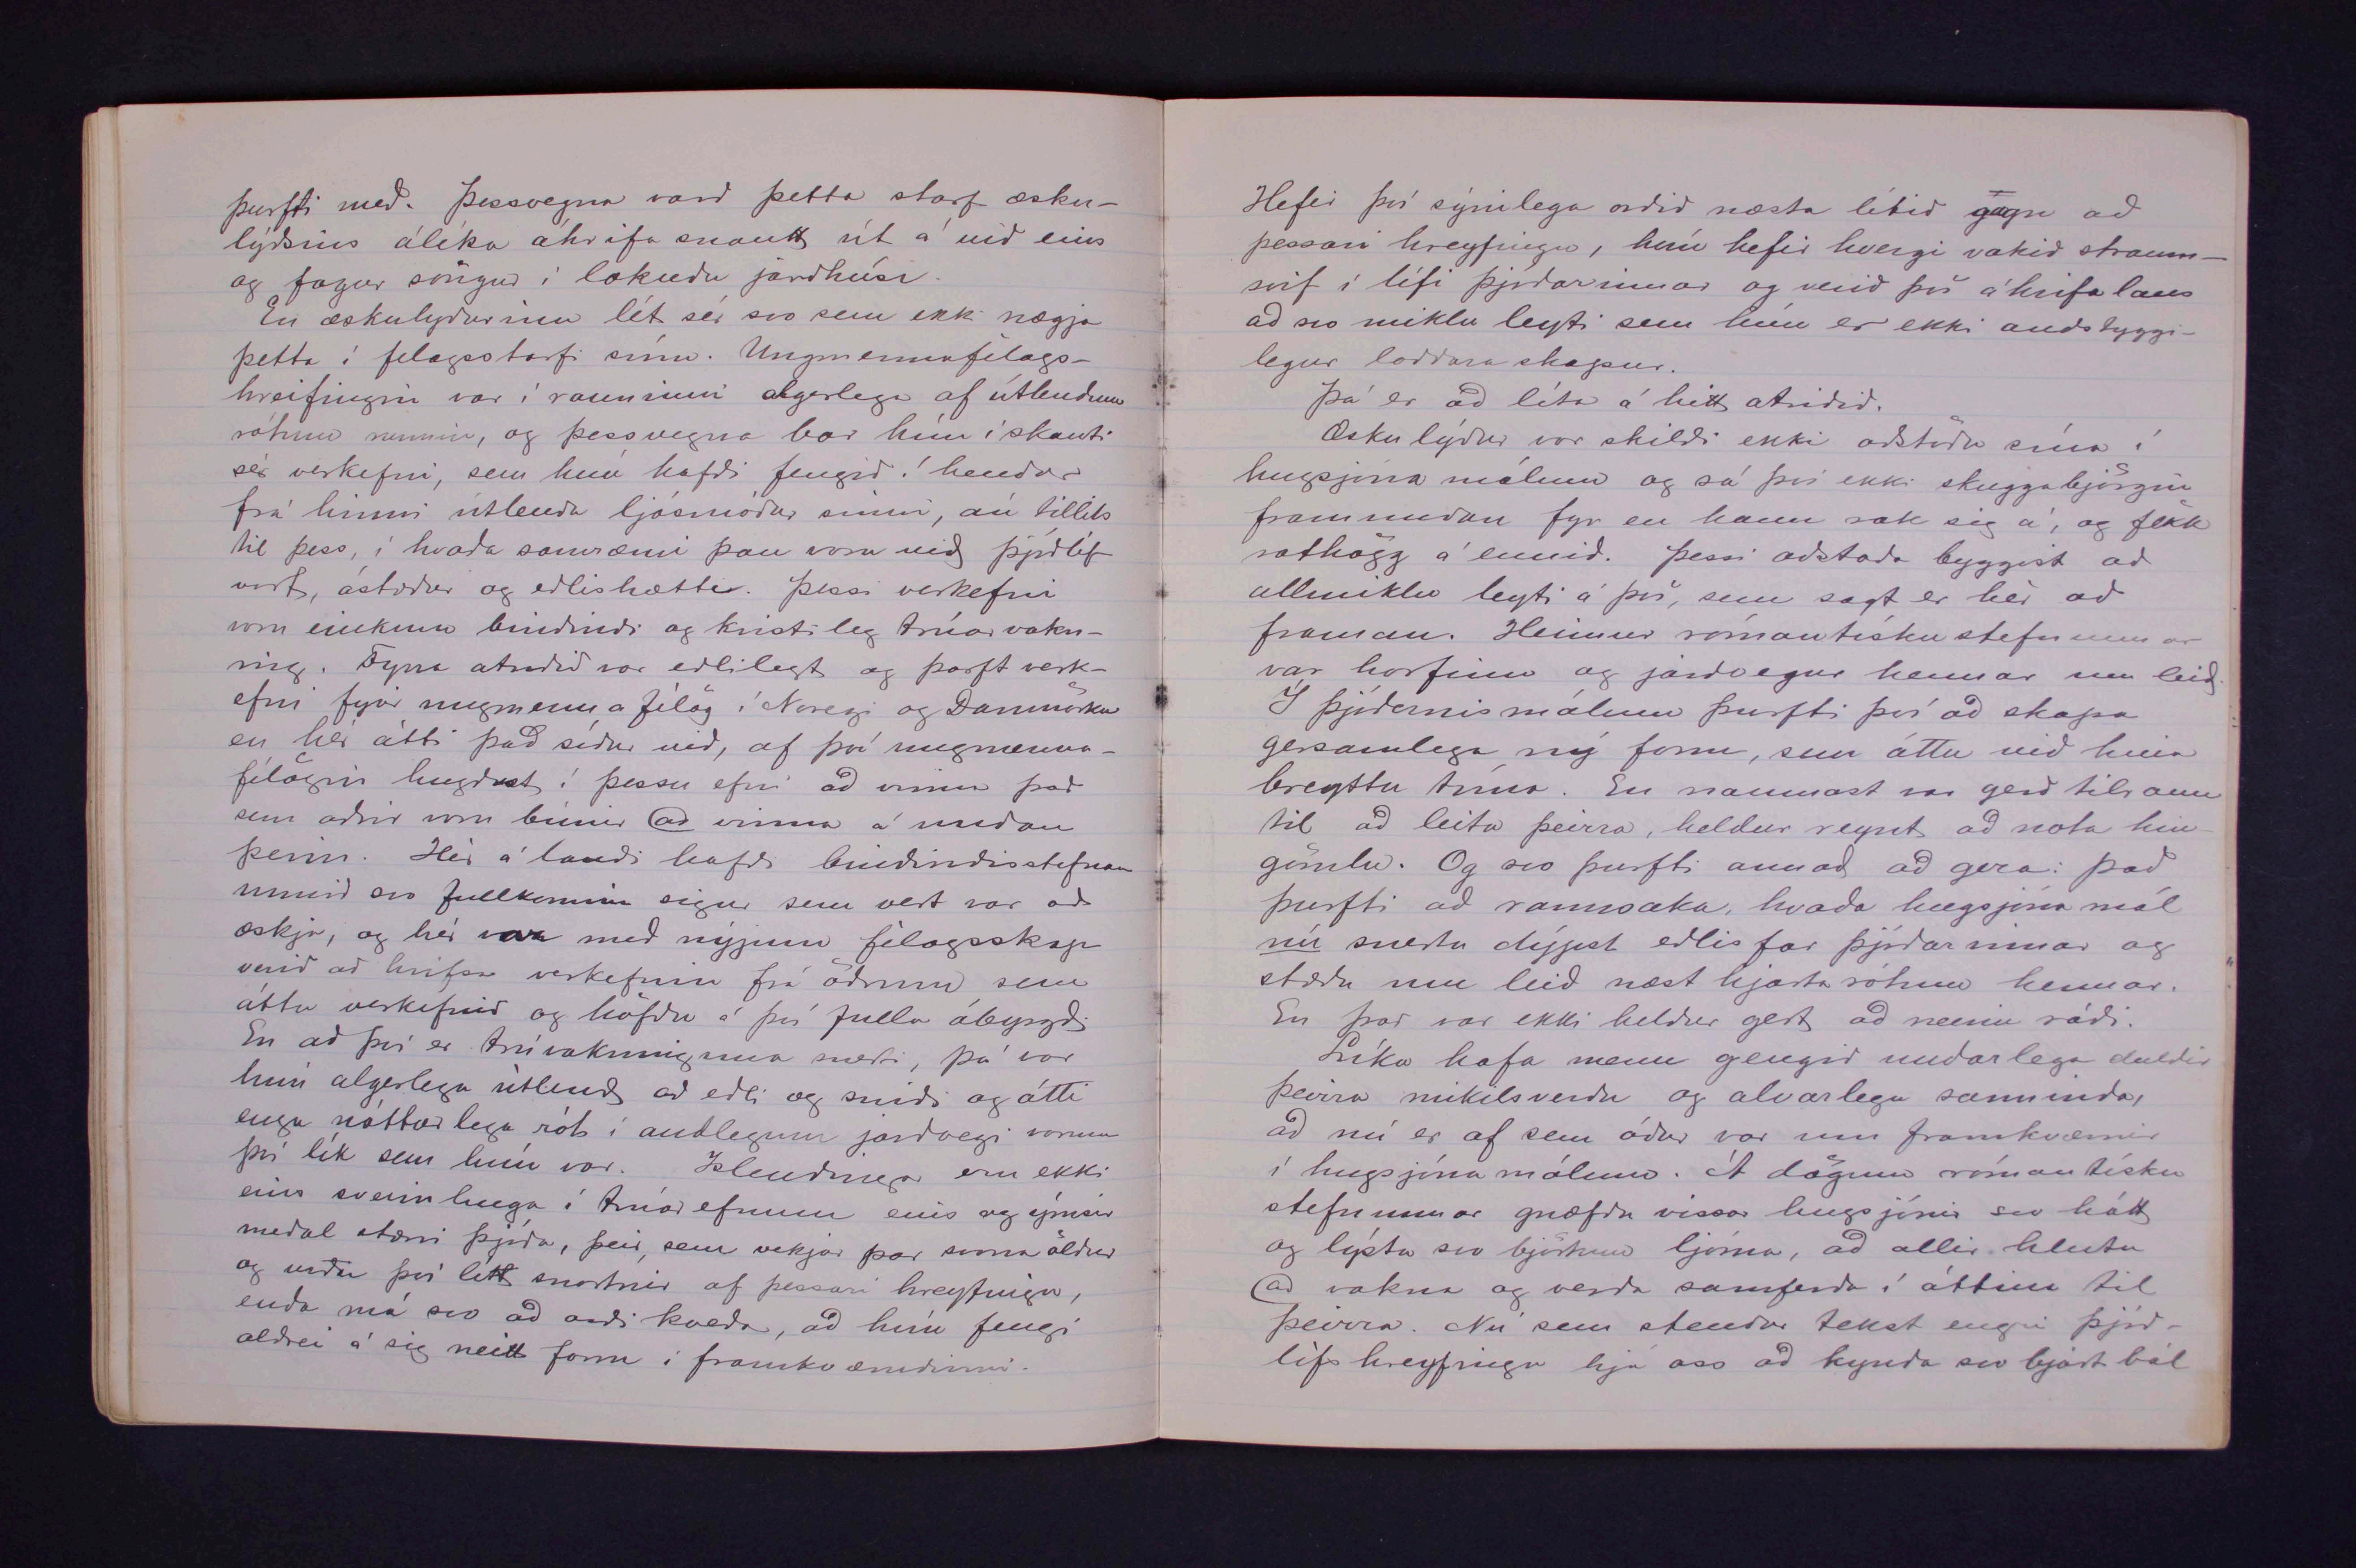 þurfti með. Þessvegna varð þetta starf æsku-
lýðsins álíka áhrifa snautt út á við eins
og fagur söngur í lokuðu jarðhúsi.
En æskulyðurinn lét sér svo sem ekki nægja
þetta í félagsstarfi sínu. Ungmennafélags-
hreifingin var í rauninni algerlega af útlendum
rótum runnin, og þessvegna bar hún í skauti
sér verkefni, sem hún hafði fengið í hendur
frá hinni útlenda ljósmóður sinni, án tillits
til þess, í hvaða samræmi þau voru við þjóðlíf
vort, ástæður og eðlishætti. Þessi verkefni
voru einkum bindindi og kristileg trúarvakn-
ing. Fyrra atriðið var eðlilegt og þarft verk-
efni fyrir ungmennafélög í Noregi og Danmörku
en hér átti það síður við, af því ungmenna-
félögin hugðust í þessu efni að vinna það
sem aðrir voru búnir að vinna á undan
þeim. Hér á landi hafði bindindisstefnan
unnið svo fullkominn sigur sem vert var að
æskja, og hér var með nýjum félagsskap
verið að hrifsa verkefnin frá öðrum sem
áttu verkefnið og höfðu á því fulla ábyrgð.
En að því er trúvakninguna snerti, þá var
hún algerlega útlend að eðli og sniði og átti
enga náttúrlega rót í andlegum jarðvegi vorum
því lík sem hún var. Íslendingar eru ekki
eins sveimhuga í trúarefnum eins og ýmsir
meðal stærri þjóða, þeir, sem vekjar þar svona öldur
og urðu því lítt snortnir af þessari hreyfingu,
enda má svo að orði kveða, að hún fengi
aldrei á sig neitt form í framkvæmdinni.
Hefir því sýnilega orðið næsta lítið gagn að
þessari hreyfingu, hún hefir hvergi vakið straum-
svif í lífi þjóðarinnar og verið því áhrifalaus
að svo miklu leyti sem hún er ekki andstyggi-
legur loddaraskapur.
Þá er að líta á hitt atriðið.
Æskulýður vor skildi ekki aðstöðu sína í
hugsjónamálum og sá því ekki skuggabjörgin
framundan fyr en hann rak sig á, og fékk
rothögg á ennið. Þessi aðstaða byggist að
allmiklu leyti á því, sem sagt er hér að
framan. Heimur rómantísku stefnunnar
var horfinn og jarðvegur hennar um leið.
Í þjóðernismálum þurfti því að skapa
gersamlega ný form, sem áttu við hina
breyttu tíma. En naumast var gerð tilraun
til að leita þeirra, heldur reynt að nota hin
gömlu. Og svo þurfti annað að gera: það
þurfti að rannsaka, hvaða hugsjónamál
nú snertu dýpst eðlisfar þjóðarinnar og
stæðu um leið næst hjartarótum hennar.
En það var ekki heldur gert að neinu ráði.
Líka hafa menn gengið undarlega duldir
þeirra mikilsverðu og alvarlegu sanninda,
að nú er af sem áður var um framkvæmdir
í hugsjónamálum. Á dögum rómantísku
stefnunnar gnæfðu vissar hugsjónir svo hátt
og lýstu svo björtum ljóma, að allir hlutu
að vakna og verða samferða í áttina til
þeirra. Nú sem stendur tekst engri þjóð-
lífs hreyfingu hjá oss að kynda svo bjart bál